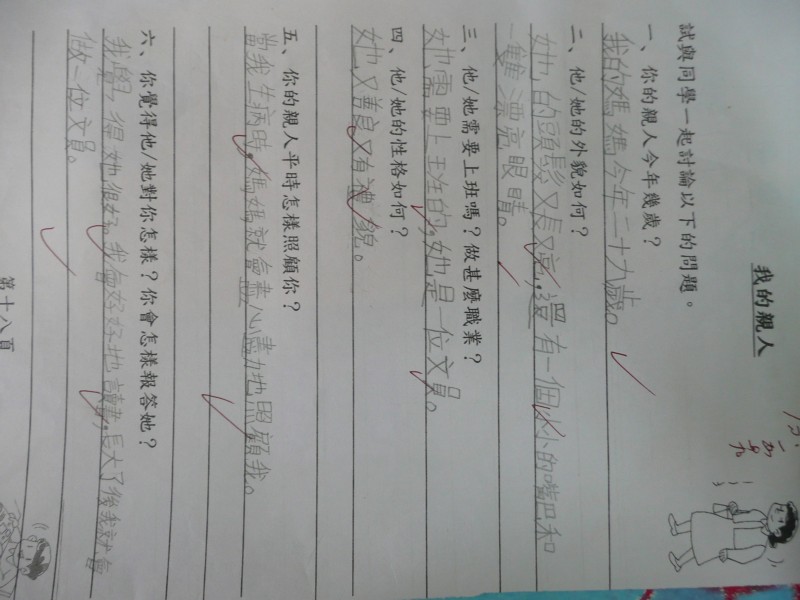 我的親人
試與同學一起討論以下的問題。
一、你的親人今年幾歲？
我的媽媽今年二十九歲。
二、他/她的外貌如何？
她的頭髮又長又亮，還有一個小小的嘴巴和
一雙漂亮眼睛。
三、他/她需要上班嗎？做甚麼職業？
她需要上班的，她是一位文員。
四、他/她的性格如何？
她又善良又有禮貌。
五、你的親人平時怎樣照顧你？
當我生病時，媽媽就會盡心盡力地照顧我。
六、你覺得他/她對你怎樣？你會怎樣報答她？
我覺得她很好，我會好好地讀書，長大了後我就會
做一位文員。
第十八頁